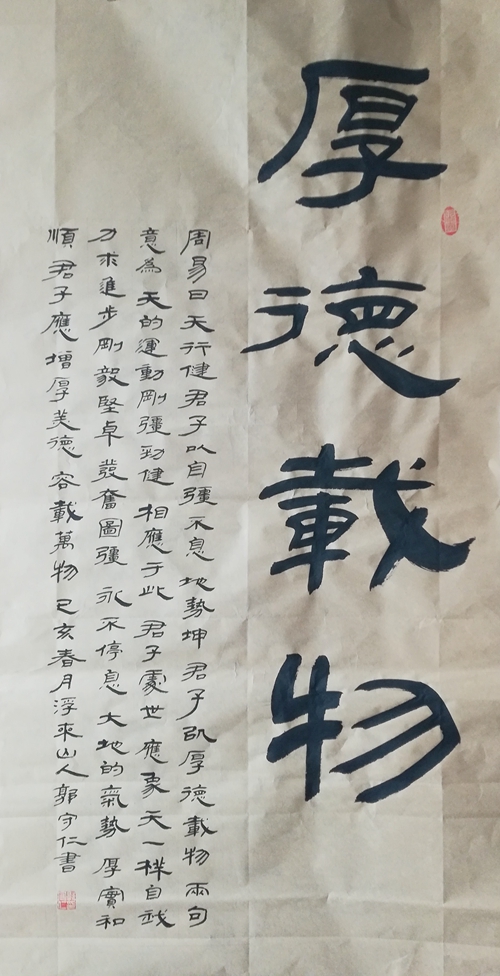 厚德載物
周易曰天行健君子以自彊不息地勢坤君子以厚德載物兩句
意為天的運動剛彊勁健相應于此君子處世應象天一樣自我
力求進步剛毅堅卓發奮圖彊永不停息大地的氣勢厚實和
順君子應增厚美德容載萬物己亥春月浮來山人郭守仁書